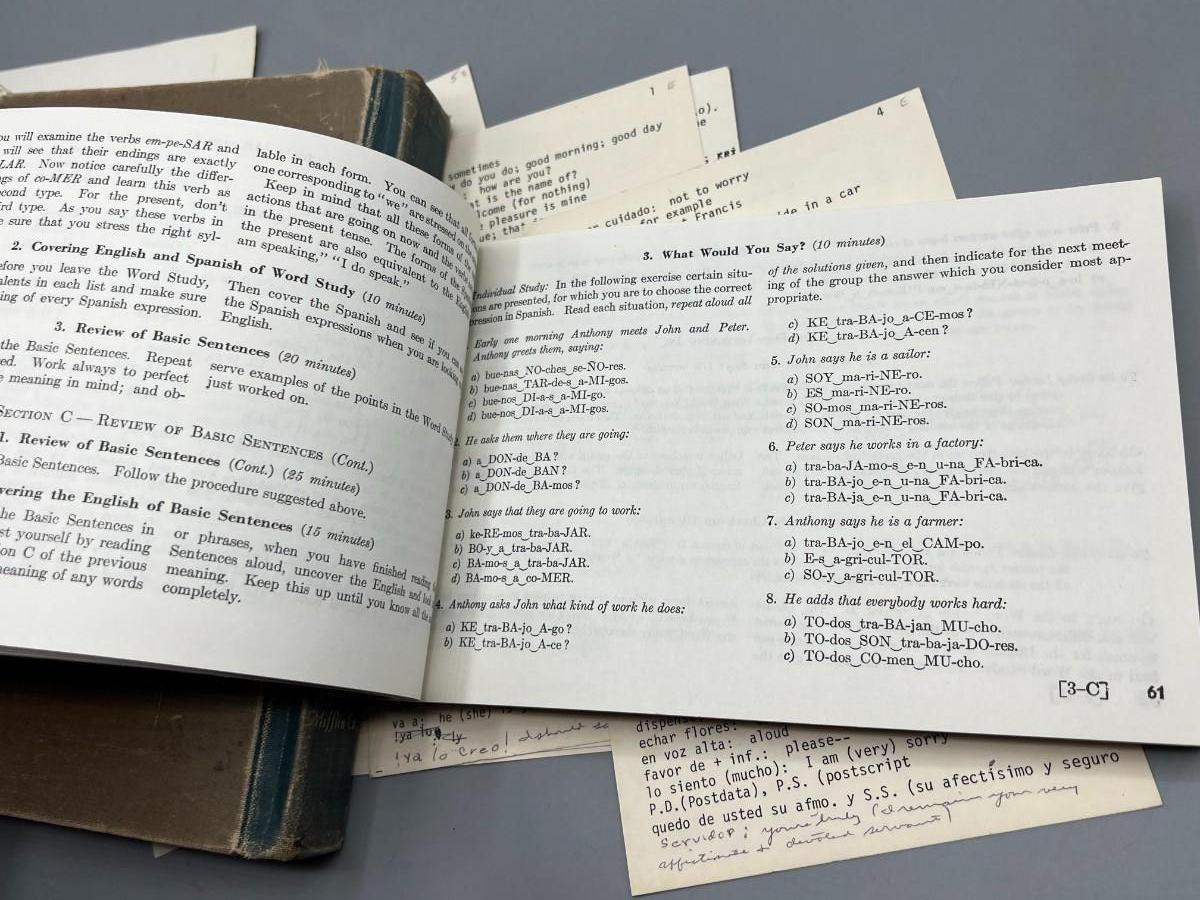 ou will examine the verbs em-pe-SAR and
will see that their endings are exactly
LAR. Now notice carefully the differ-
gs of co-MER and learn this verb as
econd type. For the present, don't
ird type. As you say these verbs in
e sure that you stress the right syl-
lable in each form. You can see that all
one corresponding to "we" are stressed on the
Keep in mind that all these forms of the
actions that are going on now and the verbs
in the present tense. The forms of the
the present are also equivalent to the English
am speaking," "I do speak."
2. Covering English and Spanish of Word Study (10 minutes)
efore you leave the Word Study,
alents in each list and make sure
ing of every Spanish expression.
Then cover the Spanish and see if you can
the Spanish expressions when you are looking
English.
3. Review of Basic Sentences (20 minutes)
the Basic Sentences. Repeat
ed. Work always to perfect
e meaning in mind; and ob-
serve examples of the points in the Word Study
just worked on.
SECTION C—REVIEW OF BASIC SENTENCES (Cont.)
1. Review of Basic Sentences (Cont.) (25 minutes)
Basic Sentences. Follow the procedure suggested above.
vering the English of Basic Sentences (15 minutes)
he Basic Sentences in
st yourself by reading
on C of the previous
eaning of any words
or phrases, when you have finished reading
Sentences aloud, uncover the English and
meaning. Keep this up until you know all the
completely.
3. What Would You Say? (10 minutes)
Individual Study: In the following exercise certain situ-
ons are presented, for which you are to choose the correct
pression in Spanish. Read each situation, repeat aloud all
of the solutions given, and then indicate for the next meet-
ing of the group the answer which you consider most ap-
propriate.
Early one morning Anthony meets John and Peter.
Anthony greets them, saying:
a) bue-nas_NO-ches_se-ÑO-res.
b) bue-nas_TAR-de-s_a-MI-gos.
c) bue-nos_DI-a-s_a-MI-go.
d) bue-nos_DI-a-s_a-MI-gos.
2. He asks them where they are going:
a) a_DON-de_BA?
b) a_DON-de_BAN?
c) a_DON-de_BA-mos?
3. John says that they are going to work:
a) ke-RE-mos_tra-ba-JAR.
b) BO-y_a_tra-ba-JAR.
c) BA-mo-s_a_tra-ba-JAR.
d) BA-mo-s_a_co-MER.
4. Anthony asks John what kind of work he does:
a) KE_tra-BA-jo_A-go?
b) KE_tra-BA-jo_A-ce?
c) KE_tra-BA-jo_a-CE-mos?
d) KE_tra-BA-jo_A-cen?
5. John says he is a sailor:
a) SOY_ma-ri-NE-ro.
b) ES_ma-ri-NE-ro.
c) SO-mos_ma-ri-NE-ros.
d) SON_ma-ri-NE-ros.
6. Peter says he works in a factory:
a) tra-ba-JA-mo-s_e-n_u-na_FA-bri-ca.
b) tra-BA-jo_e-n_u-na_FA-bri-ca.
c) tra-BA-ja_e-n_u-na_FA-bri-ca.
7. Anthony says he is a farmer:
a) tra-BA-jo_e-n_el_CAM-po.
b) E-s_a-gri-cul-TOR.
c) SO-y_a-gri-cul-TOR.
8. He adds that everybody works hard:
a) TO-dos_tra-BA-jan_MU-cho.
b) TO-dos_SON_tra-ba-ja-DO-res.
c) TO-dos_CO-men_MU-cho.
[3-C] 61
1 E
sometimes
do you do; good morning; good day
: how are you?
at is the name of?
lcome (for nothing)
e pleasure is mine
ue; that
4 E
cuidado: not to worry
for example
Francis
in a car
va a: he (she)
¡ya lo creo!
dispens
echar flores:
en voz alta: aloud
favor de + inf.: please--
lo siento (mucho): I am (very) sorry
P.D.(Postdata), P.S. (postscript
quedo de usted su afmo. y S.S. (su afectísimo y seguro
servidor: yours truly (I remain your very
affectionate & devoted servant)